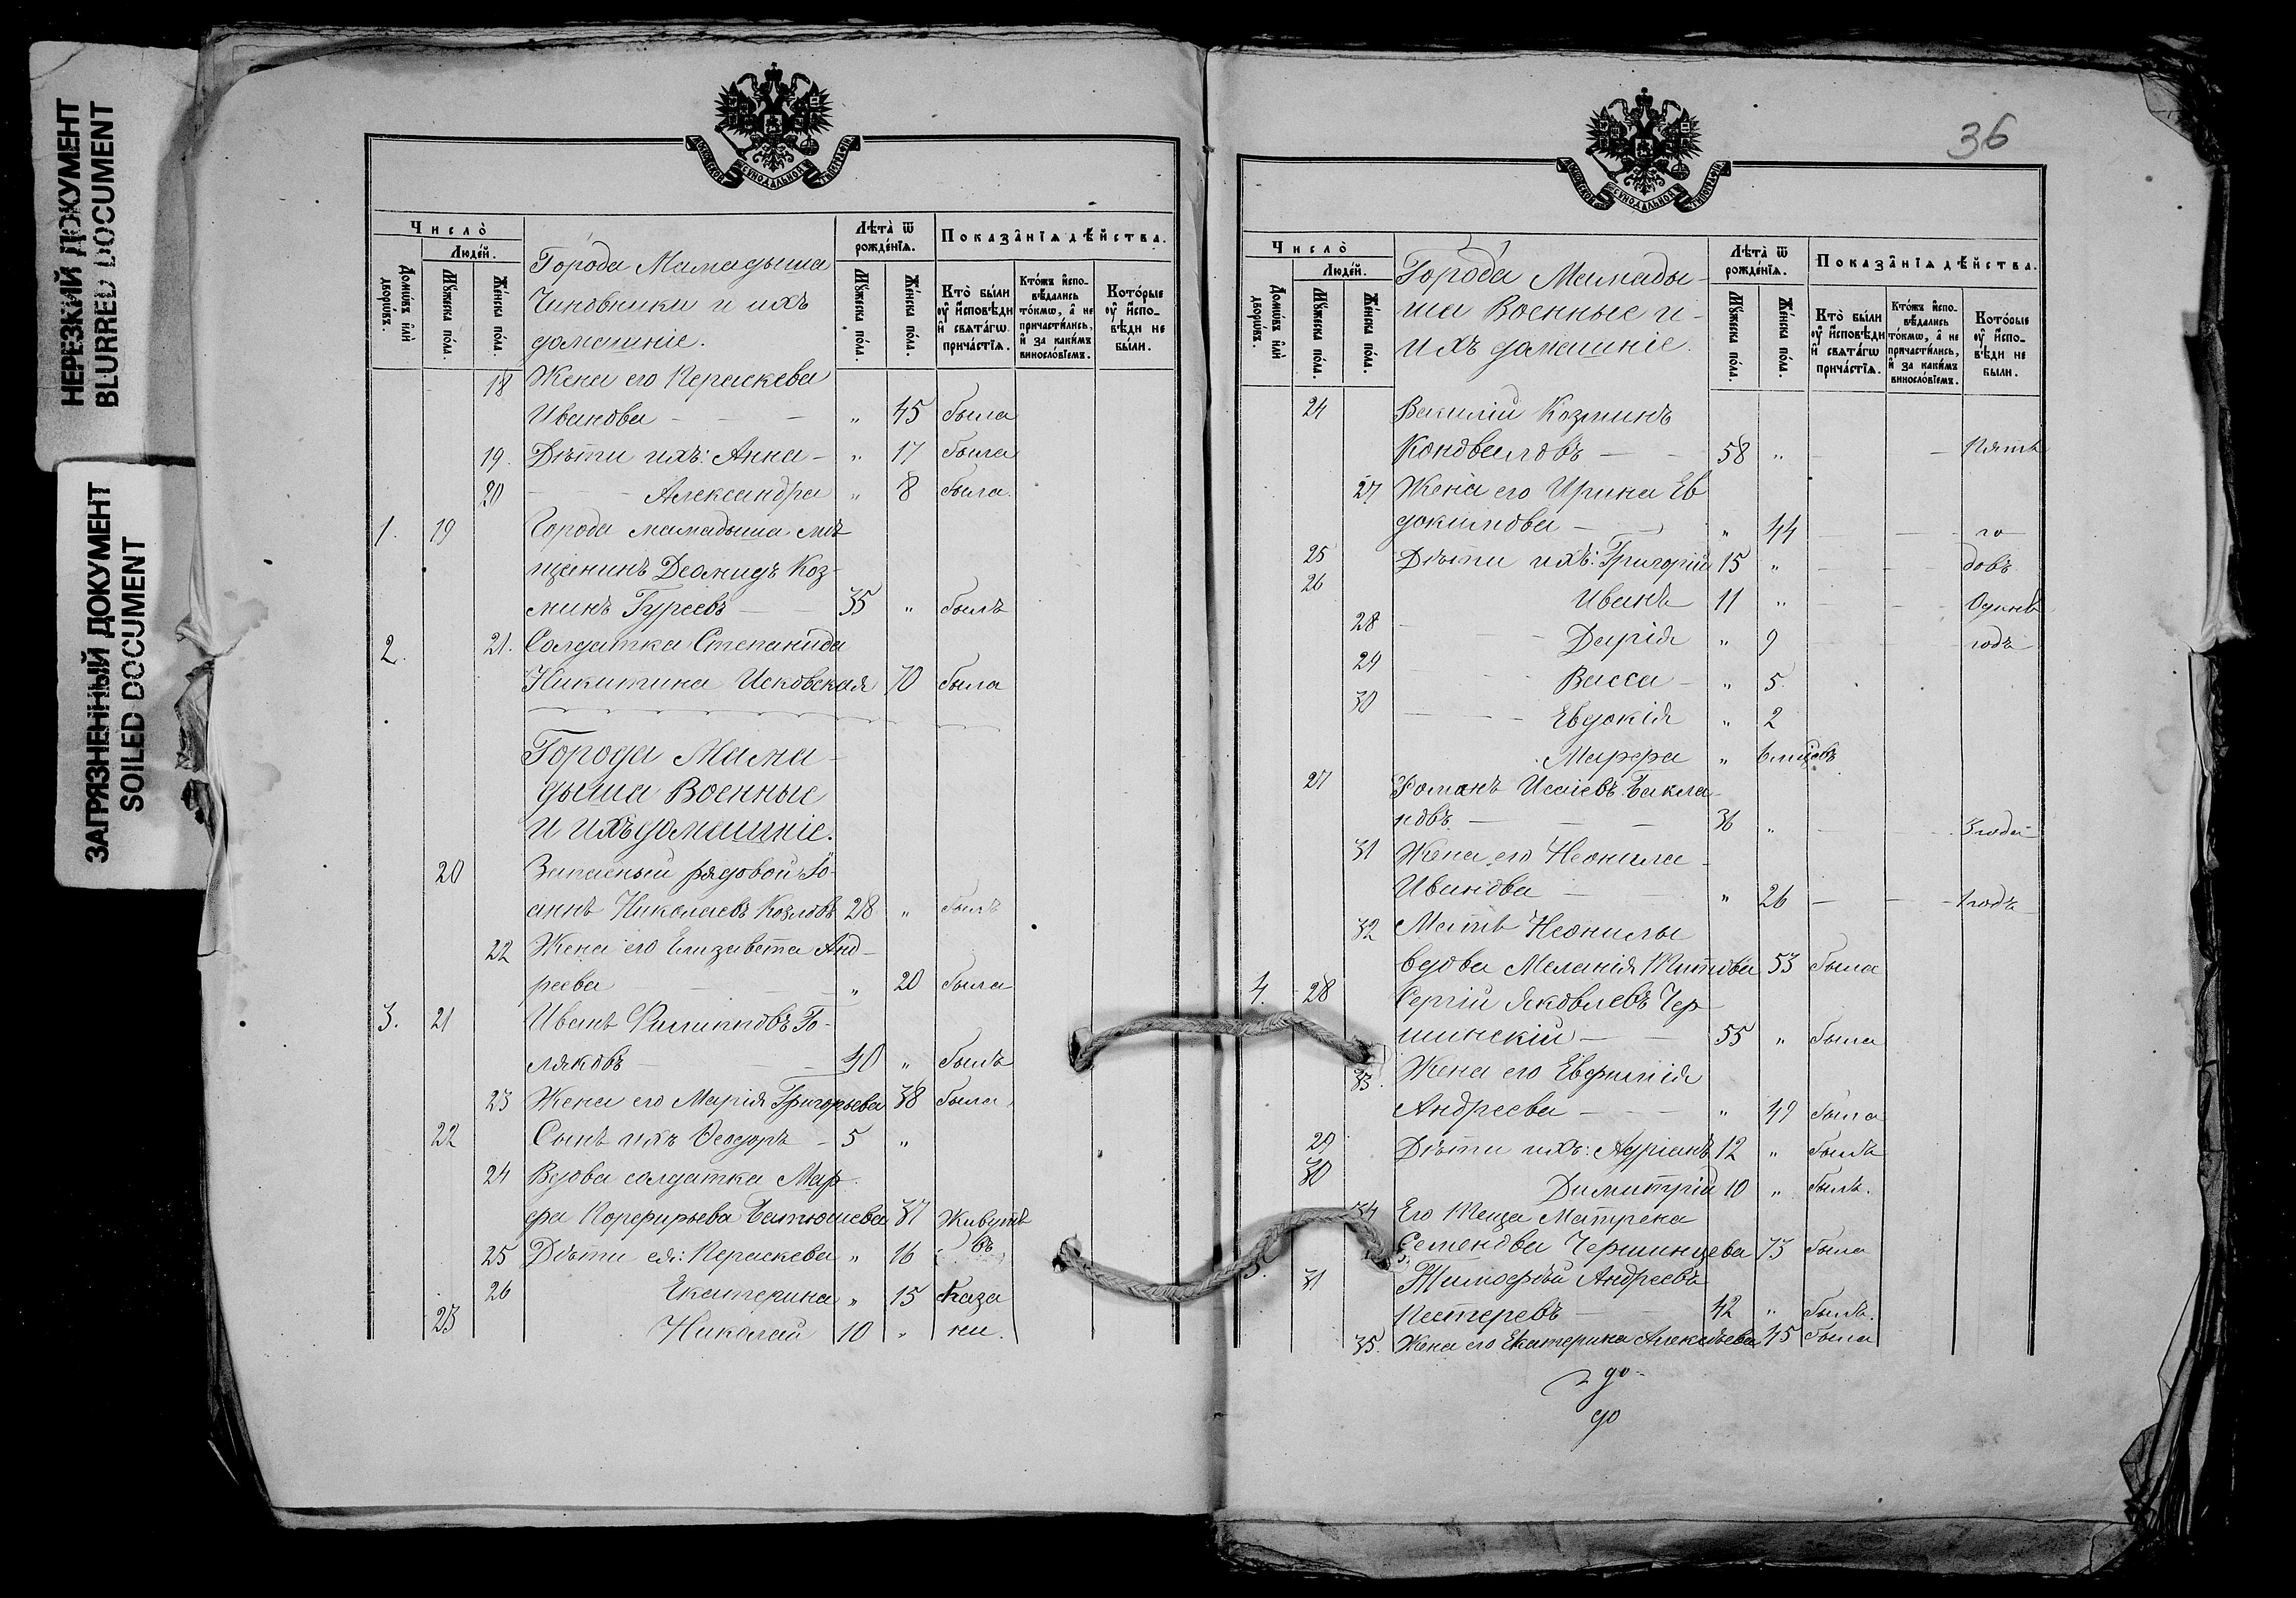 НЕРЕЗКИЙ ДОКУМЕНТ
BLURRED DOCUMENT
ЗАГРЯЗНЕННЫЙ ДОКУМЕНТ
SOILED DOCUMENT
Число̀
Людéй.
Домѡвъ и҆лѝ дворѡ́въ.
Мꙋ́жеска по́ла.
Же́нска по́ла.
Города Мамадыша
Чиновники и ихъ
домашніе.
Лѣта̀ ѿ
рожде́нїѧ.
Мꙋ́жеска по́ла.
Же́нска по́ла.
Показа̂нїѧ дѣ́йства.
Кто̀ бы́ли
ᲂу҆ и҆сповѣди
и҆ свѧта́гѡ
причастїѧ.
Кто́жъ и҆спо-
вѣ́дались
то́кмѡ, а҆ не
причасти́лись,
и҆ за каки́мъ
винослⷪ҇вїемъ.
Кото́рые
ᲂу҆ и҆спо-
вѣди не
бы́ли.
18 Жена его Параскева
Иванова — „ 45 была
19. Дѣти ихъ: Анна — „ 17 была
20 — Александра „ 8 была.
1. 19 Города Мамадыша мѣ-
щанинъ Деомидъ Коз-
минъ Гуреевъ — 35 „ былъ
2. 21. Солдатка Степанида
Никитина Исковская 70 была
Города Мама-
дыша Военные
и ихъ домашніе.
20 Запасный рядовой Іо-
аннъ Николаевъ Козловъ 28 „ былъ
22 Жена его Елизавета Анд-
реева „ 20 была
3. 21 Иванъ Филипповъ Го-
ляковъ — 40 „ былъ
23 Жена его Марія Григорьева 38 была
22 Сынъ ихъ Ѳеодоръ — 5 „
24 Вдова солдатка Мар-
фа Порфирьева Батюшева 37 Живутъ
25 Дѣти ея: Параскева „ 16 въ
26 Екатерина „ 15 Каза
23 Николай 10 „ ни.
36
Число̀
Людéй.
Домѡвъ и҆лѝ дворѡ́въ.
Мꙋ́жеска по́ла.
Же́нска по́ла.
Города Мамады-
ша Военные и-
ихъ домашніе.
Лѣта̀ ѿ
рожде́нїѧ.
Мꙋ́жеска по́ла.
Же́нска по́ла.
Показа̂нїѧ дѣ́йства.
Кто̀ бы́ли
ᲂу҆ и҆сповѣди
и҆ свѧта́гѡ
причастїѧ.
Кто́жъ и҆спо-
вѣ́дались
то́кмѡ, а҆ не
причасти́лись,
и҆ за каки́мъ
винослⷪ҇вїемъ.
Кото́рые
ᲂу҆ и҆спо-
вѣди не
бы́ли.
24 Василій Козминъ
— 58 „ — — Пять
27 Жена его Ирина Ев
докимова — „ 44 — — го
25 Дѣти ихъ: Григорій 15 „ — — довъ
26 Иванъ 11 „ — — Одинъ
28 — Дарія „ 9 — — годъ
29 — Васса — „ 5.
30 — Евдокія „ 2
Марѳа „ 6 мцсвъ
27 Романъ Исаіевъ Бакла-
новъ — 36 „ — 3 года
31 Жена его Неонила —
Иванова — „ 26 — — 1 годъ
32 Мать Неонилы
вдова Меланія Титова 53 была
4. 28 Сергій Яковлевъ Чер
шинскій — 55 „ была
33. Жена его Евфимія
Андреева — „ 49 была
29 Дѣти ихъ: Адріанъ 12 „ былъ
30 Димитрій 10 „ былъ.
34 Его теща Матрена
Семенова Чершинцева 73 была
5. 31 Тимоѳей Андреевъ
Пестеревъ — 42 „ былъ.
35. Жена его Екатерина Алексѣева 45 была
до